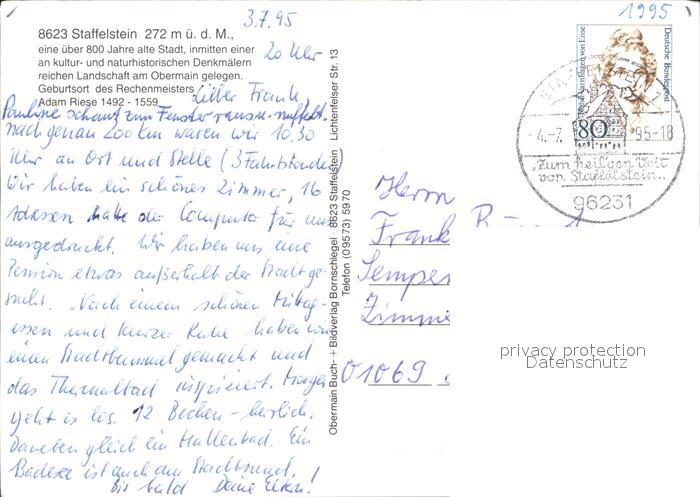 3.7.95
1995
8623 Staffelstein 272 m ü. d. M.,
eine über 800 Jahre alte Stadt, inmitten einer
an kultur- und naturhistorischen Denkmälern
reichen Landschaft am Obermain gelegen.
Geburtsort des Rechenmeisters
Adam Riese 1492 - 1559
20 Uhr
Lieber Frank
Pauline schaut zum Fenster raus
nach genau 200 km waren wir 10.30
Uhr an Ort und Stelle (3 Fahrtstunden)
Wir haben ein schönes Zimmer, 16
Adressen hatte der Computer für uns
ausgedruckt. Wir haben uns eine
Pension etwas außerhalb der Stadt ge-
sucht. Nach einem schönen Mittag-
essen und kurzer Ruhe haben wir
einen Stadtbummel gemacht und
das Thermalbad inspiziert. Morgen
geht es los. 12 Becken - herrlich.
Daneben gleich ein Hallenbad. Ein
Badesee ist auch am Stadtrand.
Bis bald Deine Eltern!
Obermain Buch- + Bildverlag Bornschlegel · 8623 Staffelstein · Lichtenfelser Str. 13
Telefon (09573) 5970
Deutsche Bundespost
Rahel Varnhagen von Ense
80
-4.-7. 95-18
"Zum heil'gen Veit
von Staffelstein..
96231
Herrn
Frank
Semper
Zimme
01069
privacy protection
Datenschutz